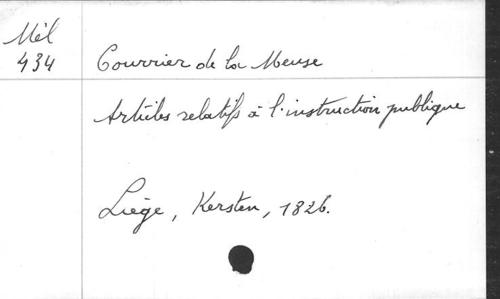 Mél
434
Courrier de la Meuse
Articles relatifs à l'instruction publique
Liège, Kersten, 1826.